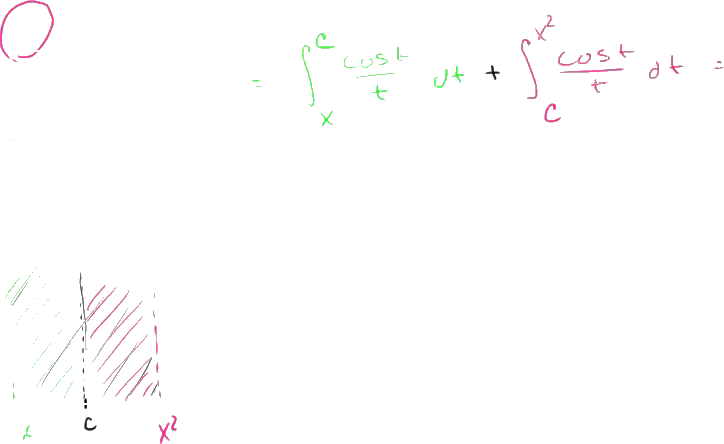 = ∫_x^c cos t / t dt + ∫_c^{x²} cos t / t dt =
x c x²